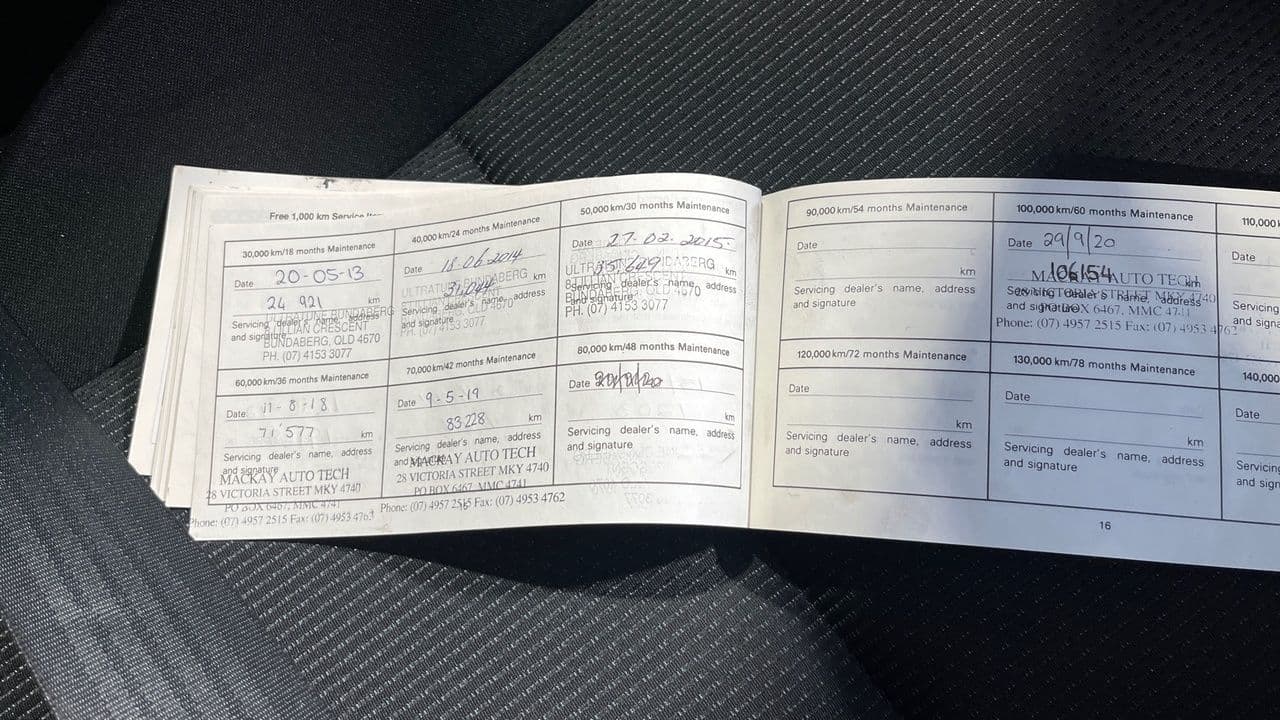 Free 1,000 km Service
30,000 km/18 months Maintenance
Date 20-05-13
24 921 km
Servicing dealer's name, address
and signature
ULTRATUNE BUNDABERG
CRESCENT
BUNDABERG, QLD 4670
PH. (07) 4153 3077
40,000 km/24 months Maintenance
Date 18.06.2014
km
ULTRATUNE BUNDABERG
Servicing dealer's name, address
and signature
QLD 4670
PH. (07) 4153 3077
50,000 km/30 months Maintenance
Date 27-02-2015.
55,649 km
Servicing dealer's name, address
and signature
QLD 4670
PH. (07) 4153 3077
60,000 km/36 months Maintenance
Date 11-8-18
71'577 km
Servicing dealer's name, address
and signature
MACKAY AUTO TECH
28 VICTORIA STREET MKY 4740
PO BOX 6467, MMC 4741
Phone: (07) 4957 2515 Fax: (07) 4953 4762
70,000 km/42 months Maintenance
Date 9-5-19
83228 km
Servicing dealer's name, address
and signature
MACKAY AUTO TECH
28 VICTORIA STREET MKY 4740
PO BOX 6467, MMC 4741
Phone: (07) 4957 2515 Fax: (07) 4953 4762
80,000 km/48 months Maintenance
Date
km
Servicing dealer's name, address
and signature
90,000 km/54 months Maintenance
Date
km
Servicing dealer's name, address
and signature
100,000 km/60 months Maintenance
Date 29/9/20
106154 km
Servicing dealer's name, address
and signature
MACKAY AUTO TECH
28 VICTORIA STREET MKY 4740
PO BOX 6467, MMC 4741
Phone: (07) 4957 2515 Fax: (07) 4953 4762
110,000
Date
Servicing
and sign
120,000 km/72 months Maintenance
Date
km
Servicing dealer's name, address
and signature
130,000 km/78 months Maintenance
Date
km
Servicing dealer's name, address
and signature
140,000
Date
Servicing
and sign
16